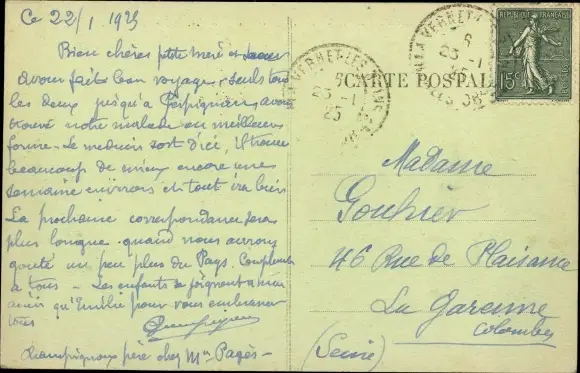 Ce 22/1 1923
Bien chères petite mère et sœur
avons fait bon voyage - seuls tous
les deux jusqu'à Perpignan, avons
trouvé notre malade en meilleure
forme - Le médecin sort d'ici, il trouve
beaucoup de mieux encore une
semaine environ et tout ira bien
La prochaine correspondance sera
plus longue - quand nous aurons
goûté un peu plus du Pays. Compliments
à tous - Les enfants se joignent à moi
ainsi qu'Emilie pour vous embrasser
tous
Champignoux père chez Mr Pagès -
CARTE POSTALE
VERNET-LES-
23 -1
23
VERNET-L
23 -1
REPUBLIQUE FRANÇAISE
15c
POSTES
Madame
Gouhier
46 Rue de Plaisance
La Garenne
Colombes
(Seine)